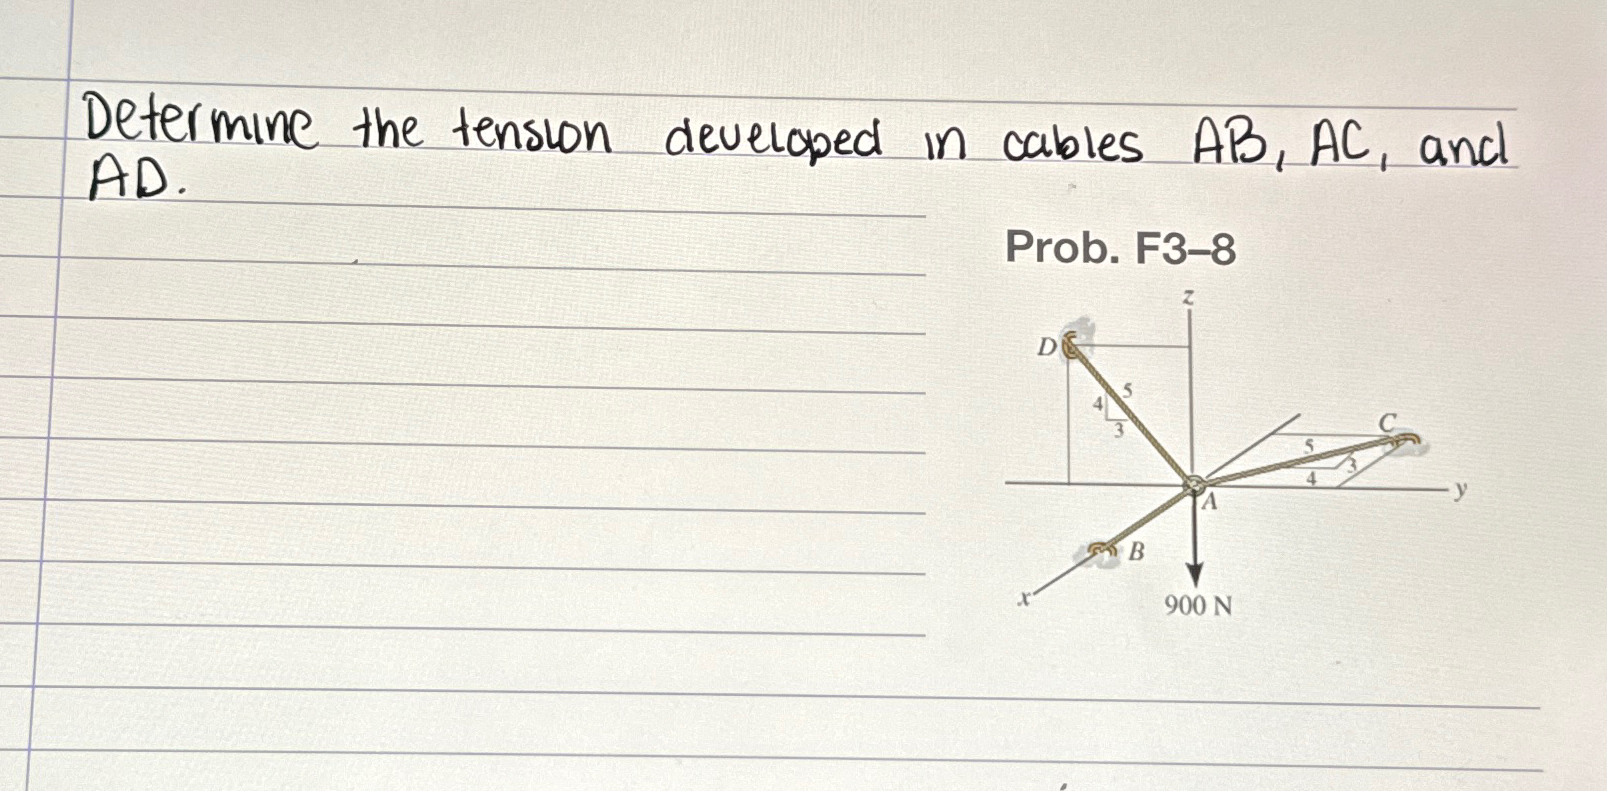 Determine the tension developed in cables AB, AC, and
AD.
Prob. F3–8
z
D
5
4
3
C
5
3
4
y
A
B
x
900 N